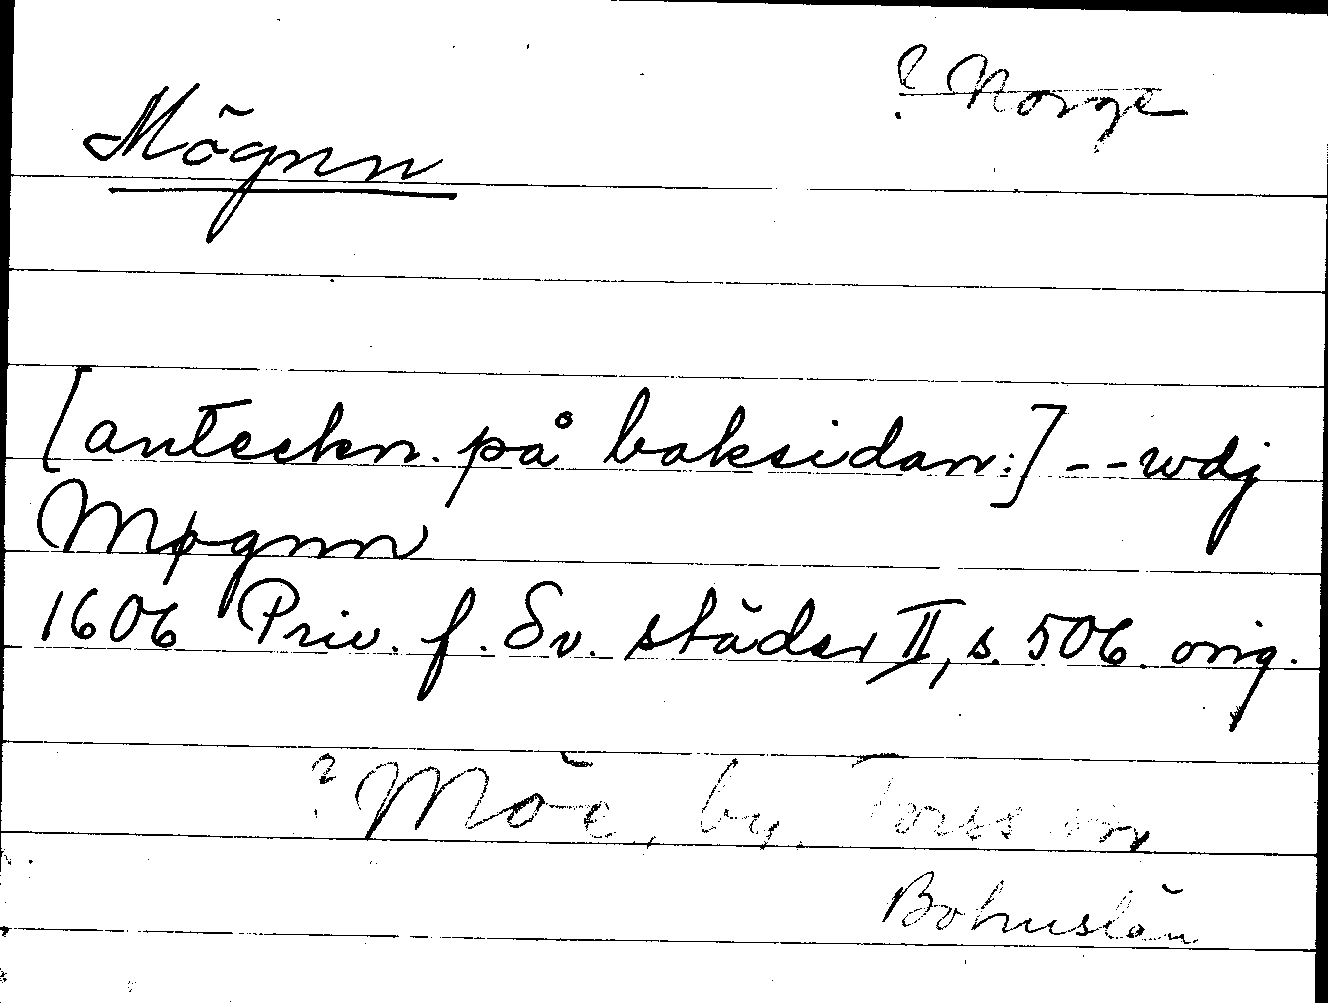 ? Norge
Mögnn
[anteckn. på baksidan:] -- wdj
Møgnn
1606 Priv. f. Sv. städer II, s. 506. orig.
? Möe, by. Torss sn
Bohuslän